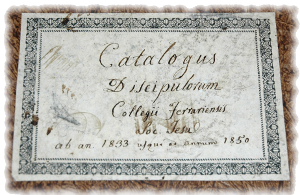 Catalogus
Discipulorum
Collegii Ferrariensis
Soc Jesu
ab an. 1833 usque ad annum 1850